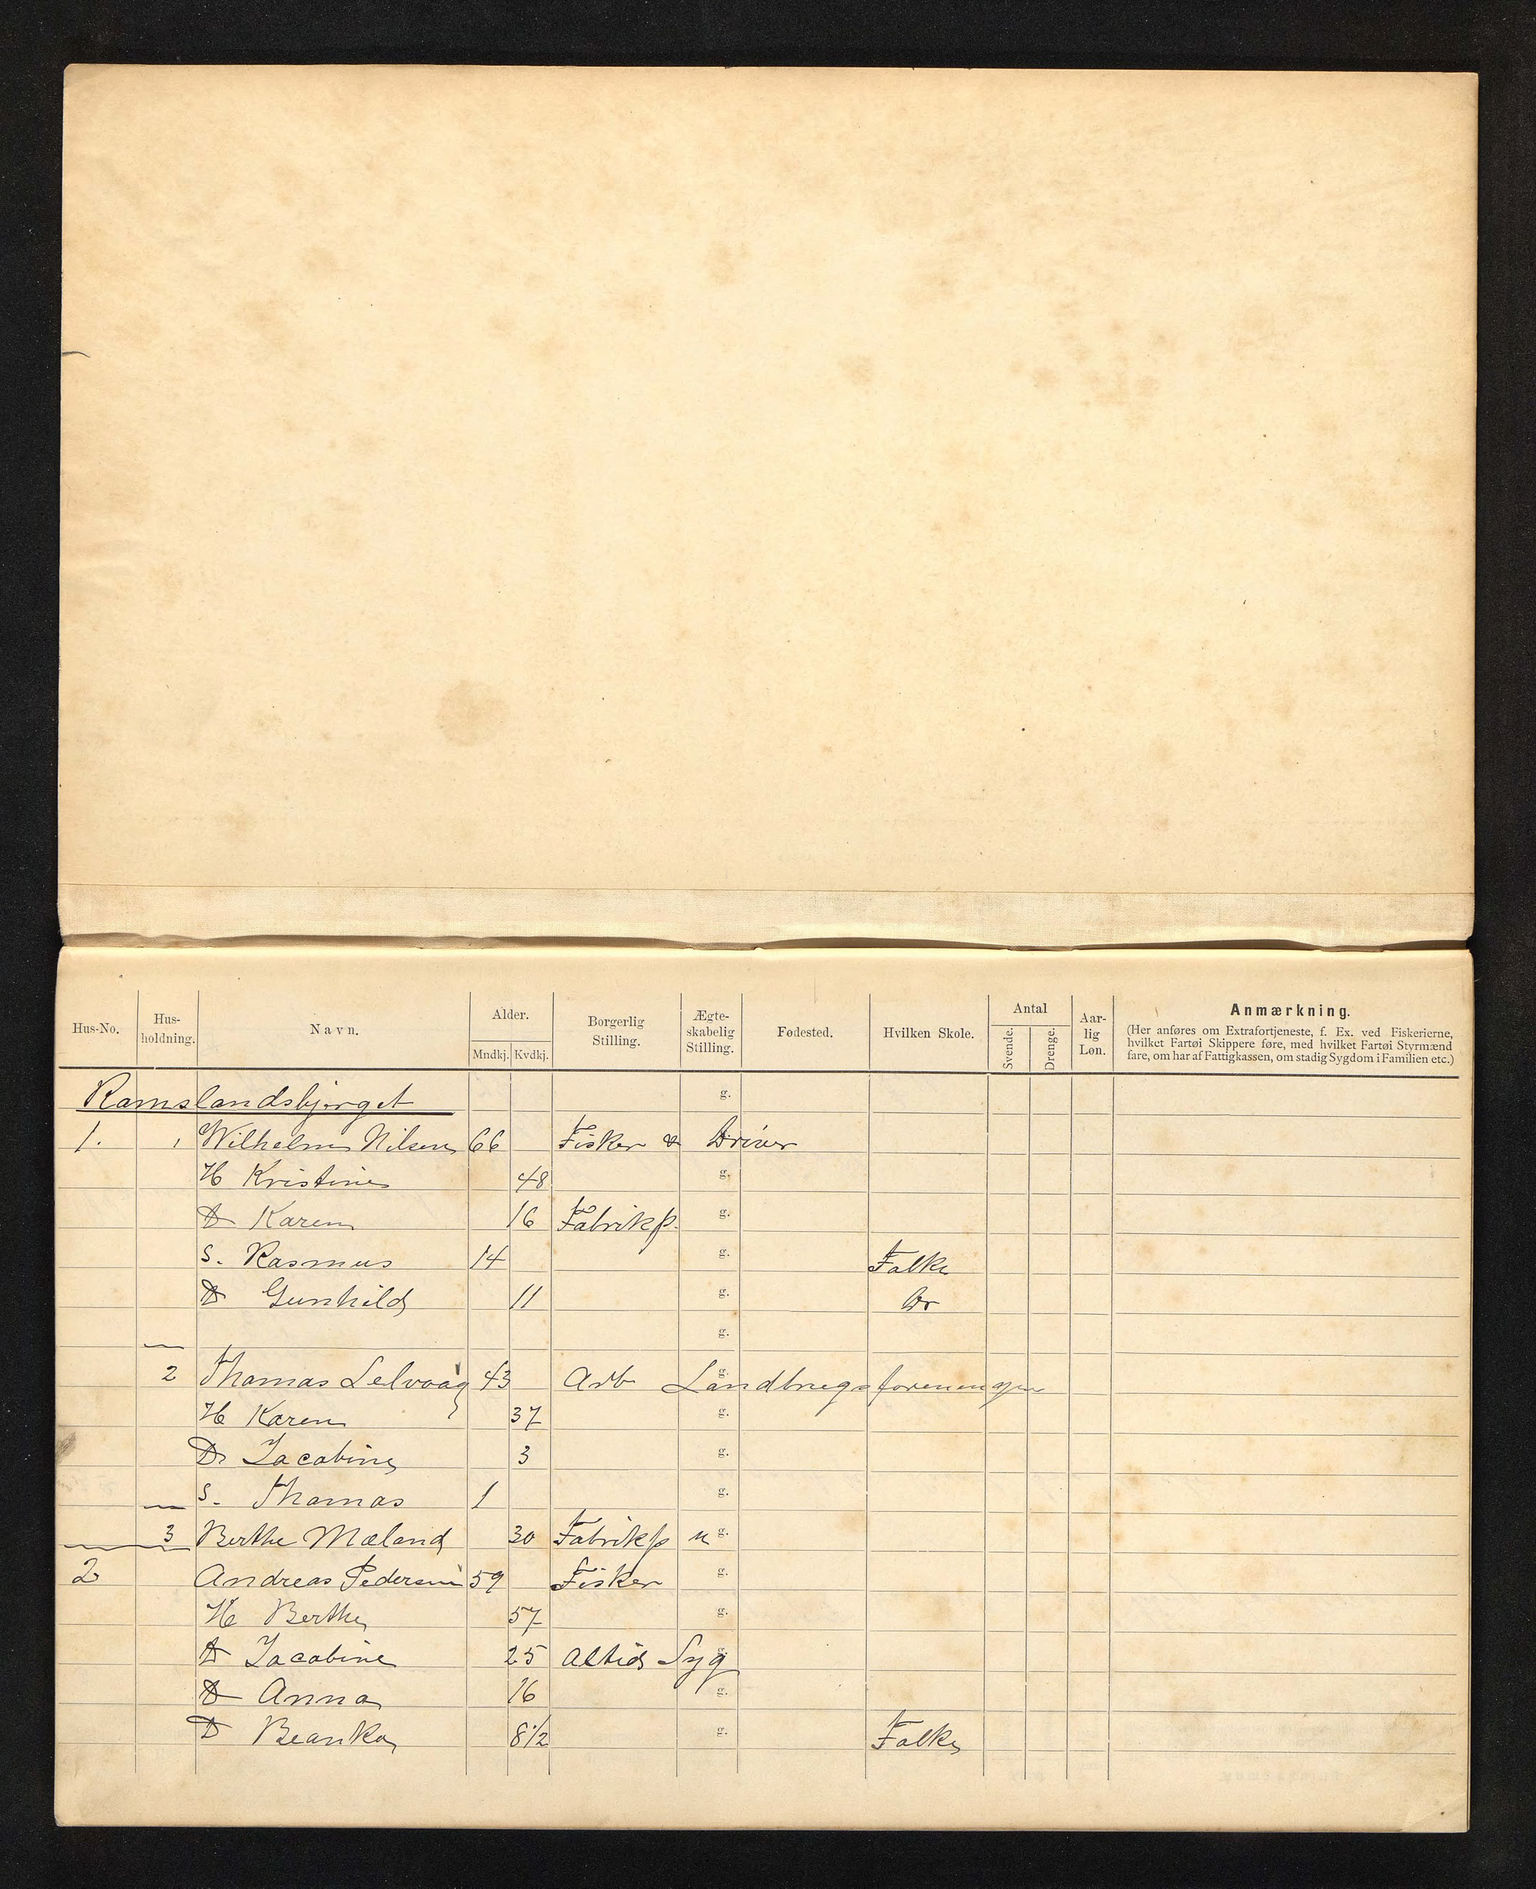 Hus-No. Hus-holdning. Navn. Alder. Mndkj. Kvdkj. Borgerlig Stilling. Ægte-skabelig Stilling. Fødested. Hvilken Skole. Antal Svende. Drenge. Aar-lig Løn. Anmærkning.
(Her anføres om Extrafortjeneste, f. Ex. ved Fiskerierne, hvilket Fartøi Skippere føre, med hvilket Fartøi Styrmænd fare, om har af Fattigkassen, om stadig Sygdom i Familien etc.)
Ramslandsbjerget g.
1. 1 Wilhelm Nilsen 66 Fisker Driver
H Kristine 48 g.
D Karen 16 Fabrikp. g.
S. Rasmus 14 g. Folke
D Gunhild 11 g. Do
g.
2 Thomas Selvaag 43 Arb g. Landbrugsforeningen
H Karen 37 g.
D Jacobine 3 g.
S. Thomas 1 g.
3 Berthe Mæland 30 Fabrikp u g.
2 Andreas Pedersen 59 Fisker g.
H Berthe 57 g.
D Jacobine 25 Altid Syg g.
D Anna 16 g.
D Beanka 8 1/2 g. Folke